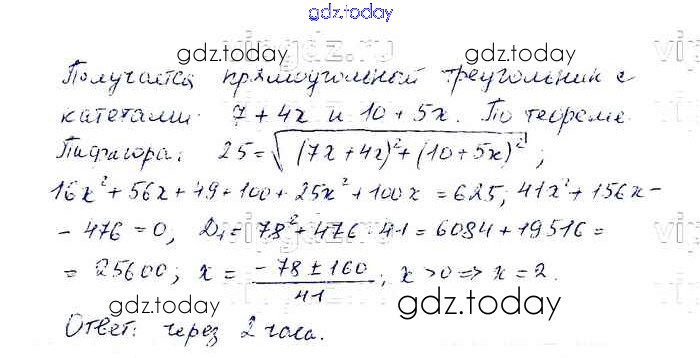 gdz.today
gdz.today gdz.today
Получается прямоугольный треугольник с
катетами 7 + 4x и 10 + 5x. По теореме
Пифагора: 25 = √(7x + 4x)² + (10 + 5x)² ;
16x² + 56x + 49 + 100 + 25x² + 100x = 625; 41x² + 156x -
- 476 = 0; D₁ = 78² + 476 · 41 = 6084 + 19516 =
= 25600; x = (-78 ± 160)/41; x > 0 => x = 2.
gdz.today gdz.today
Ответ: через 2 часа.